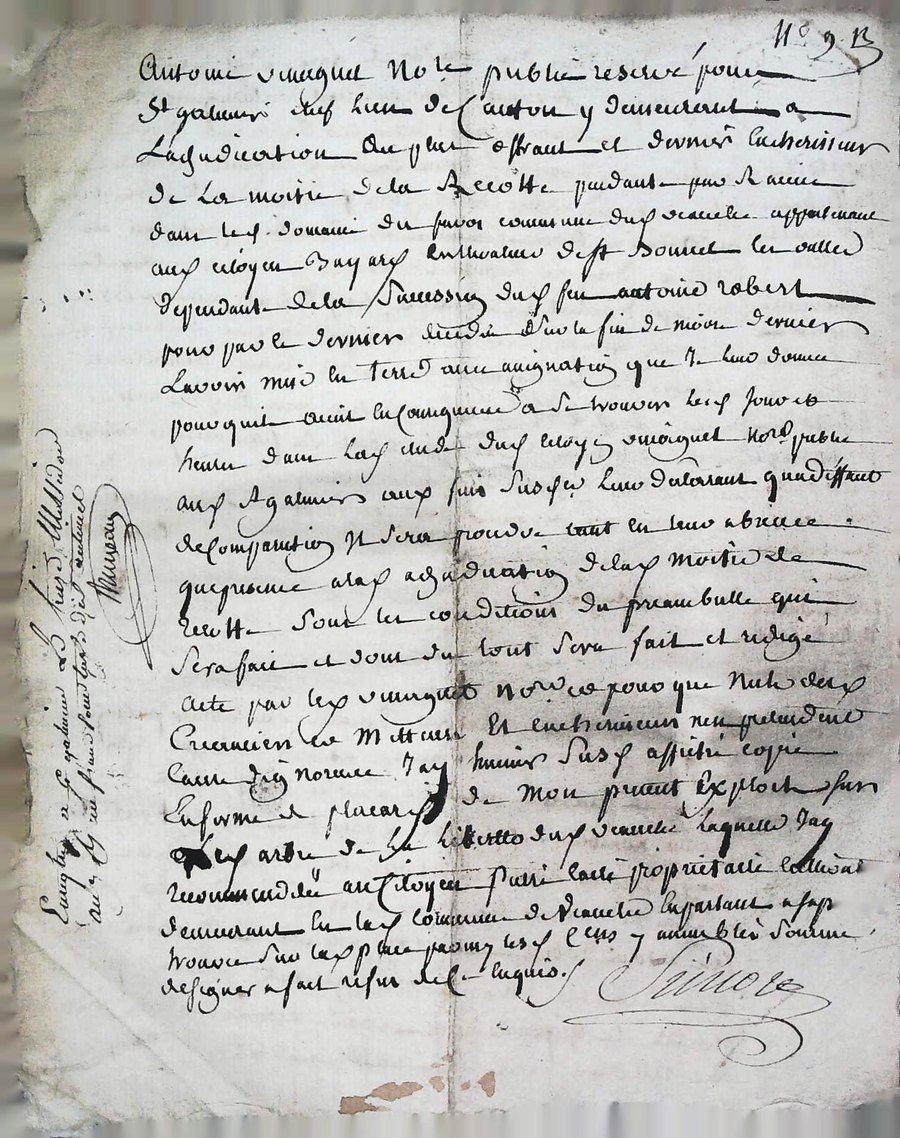 Antoine vinagret No.re public reservé pour
St galmier chef lieu de Canton y demeurant a
Ladjudication au plus offrant et dernier Encherisseur
de La moitié de la Recolte pendante par Racine
dans led. domaine du commune dud. veauche appartenant
aux citoyen Bayard Cultivateur de st Bonnet les oulles
dependante de la Succession dud. feu antoine robert
pour par le dernier decedé Sur la fin de nivose dernier
Lavoir mise En Terre avec assignation que Je leur donne
pour quils aient En Consequence a se trouver lesd. Jour et
heure dans Lad. étude dud. Citoyen vinagret No.re public
aud. St galmier aux fins Susd. leur declarant qua deffaut
de Comparution Il Sera procedé tant En leur absence
que presence a lad. adjudication de lad. moitié de
recolte Sous les conditions du preambulle qui
Sera fait et dont du tout Sera fait et redigé
acte par led. vinagret no.re et pour que Nuls desd.
Creanciers et Metteurs Et Encherisseurs nen pretendent
Cause dignorance Jay heure Susd. affiché copie
En forme de placard de Mon present Exploit Sur
Led. arbre de La Liberté dud. veauche laquelle Jay
recommandée au Citoyen proprietaire Cultivateur
demeurant En lad. Commune de Veauche En parlant a
trouvé sur lad. place parmy lesd. Cens y assemblés Sommé
de signer a fait refus de Ce Enquis.
Enregistré a St galmier Le treize Messidor
an reçu un franc